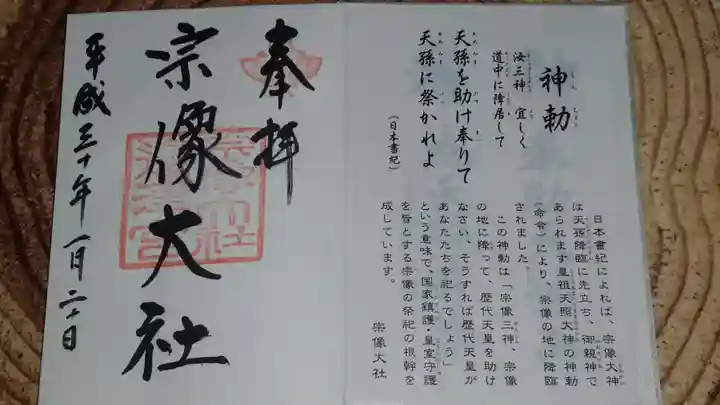 神勅
汝三神　宜しく
道中に降居して
天孫を助け奉りて
天孫に祭かれよ
（日本書紀）
日本書紀によれば、宗像大神
は天孫降臨に先立ち、御親神で
あられます皇祖天照大神の神勅
（命令）により、宗像の地に降臨
されました。
この神勅は「宗像三神、宗像
の地に降って、歴代天皇を助け
なさい、そうすれば歴代天皇が
あなたたちを祀るでしょう」
という意味で、国家鎮護・皇室守護
を旨とする宗像の祭祀の根幹を
成しています。
宗像大社
奉拝
宗像大社
平成三十年一月二十日